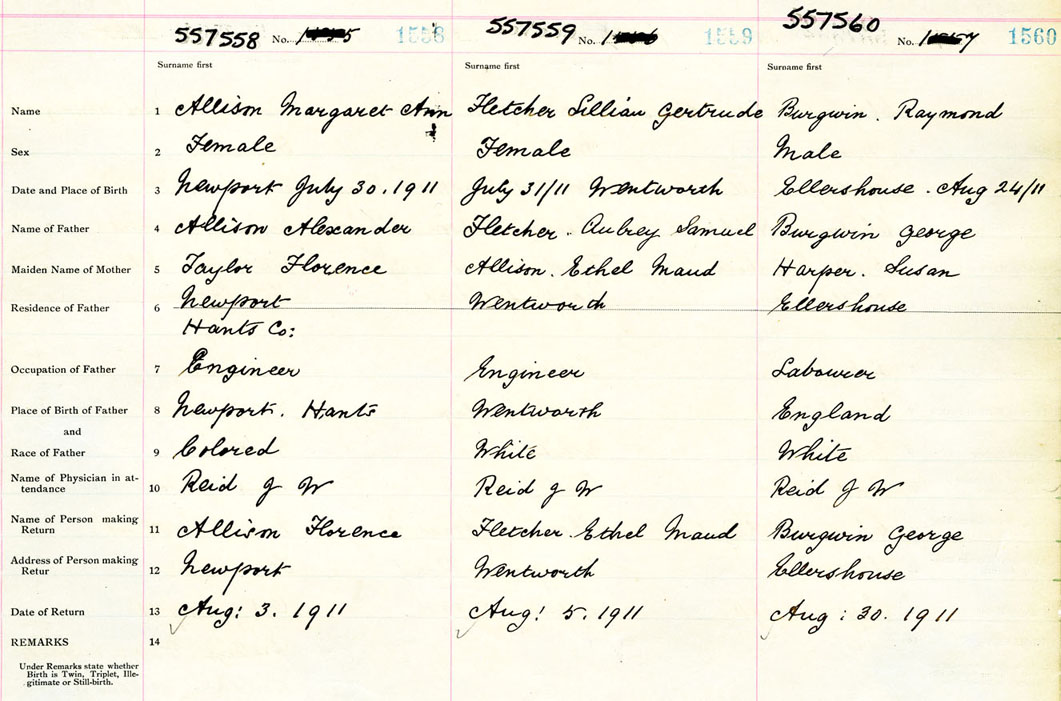 557558 No. 1558
557559 No. 1559
557560 No. 1560
Surname first Surname first Surname first
Name 1 Allison Margaret Ann Fletcher Lillian Gertrude Burgwin. Raymond
Sex 2 Female Female Male
Date and Place of Birth 3 Newport July 30. 1911 July 31/11 Wentworth Ellershouse. Aug 24/11
Name of Father 4 Allison Alexander Fletcher. Aubrey Samuel Burgwin George
Maiden Name of Mother 5 Taylor Florence Allison. Ethel Maud Harper. Susan
Residence of Father 6 Newport Wentworth Ellershouse
Hants Co:
Occupation of Father 7 Engineer Engineer Labourer
Place of Birth of Father 8 Newport. Hants Wentworth England
and
Race of Father 9 Colored White White
Name of Physician in at-
tendance 10 Reid J W Reid J W Reid J W
Name of Person making
Return 11 Allison Florence Fletcher. Ethel Maud Burgwin George
Address of Person making
Retur 12 Newport Wentworth Ellershouse
Date of Return 13 Aug: 3. 1911 Aug: 5. 1911 Aug: 30. 1911
REMARKS 14
Under Remarks state whether
Birth is Twin, Triplet, Ille-
gitimate or Still-birth.